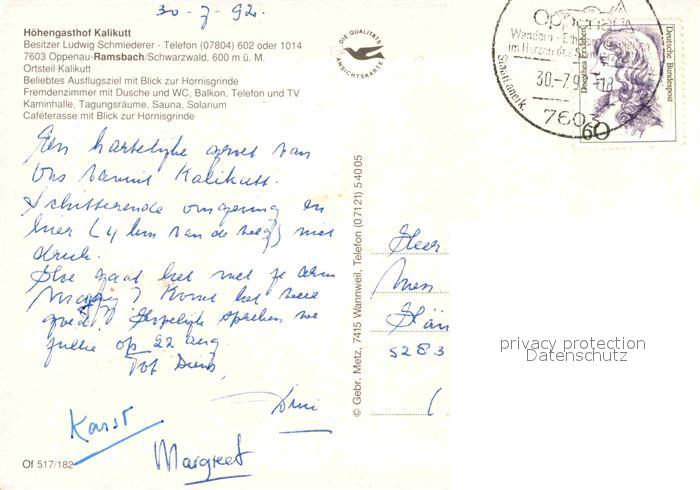 30-7-92.
Höhengasthof Kalikutt
Besitzer Ludwig Schmiederer - Telefon (07804) 602 oder 1014
7603 Oppenau-Ramsbach/Schwarzwald, 600 m ü. M.
Ortsteil Kalikutt
Beliebtes Ausflugsziel mit Blick zur Hornisgrinde
Fremdenzimmer mit Dusche und WC, Balkon, Telefon und TV
Kaminhalle, Tagungsräume, Sauna, Solarium
Caféterasse mit Blick zur Hornisgrinde
DIE QUALITÄTS
ANSICHTSKARTE
Oppenau
Wandern - Erholen
im Herzen des
30.-7.92-18
Staatl. anerk.
7603
Dorothea Erxleben
Deutsche Bundespost
60
Een hartelijke groet van
Ons vanuit Kalikutt.
Schitterende omgeving en
hier (4 km van de weg) niet
druk.
Hoe gaat het met je
Komt het weer
goed? Hopelijk spreken we
jullie op 22 aug
Tot Dinsd,
Karst
Margreet
Of 517/182
© Gebr. Metz, 7415 Wannweil, Telefon (07121) 54005
Heer
5283
privacy protection
Datenschutz